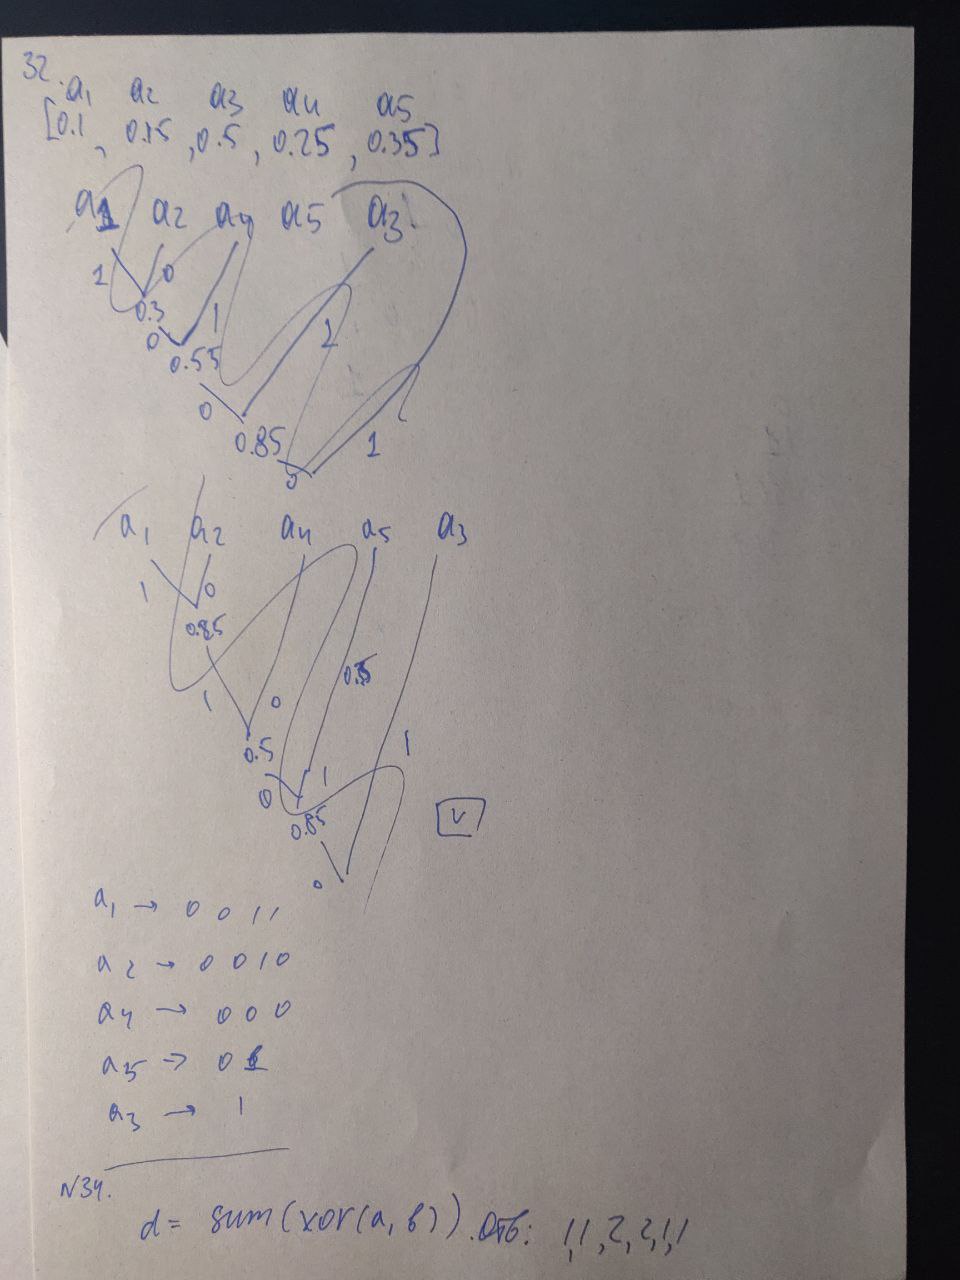 32.
a1 a2 a3 a4 a5
[0.1, 0.15, 0.5, 0.25, 0.35]
a1 a2 a4 a5 a3
1 0
0.3
0 1
0.55 1
0
0.85 1
0
a1 a2 a4 a5 a3
1 0
0.85
1 0
0.5 1
0 1
0.85 v
0
a1 → 0011
a2 → 0010
a4 → 000
a5 → 01
a3 → 1
N34.
d = sum(xor(a, b)). Отв: 1,1,2,2,1,1